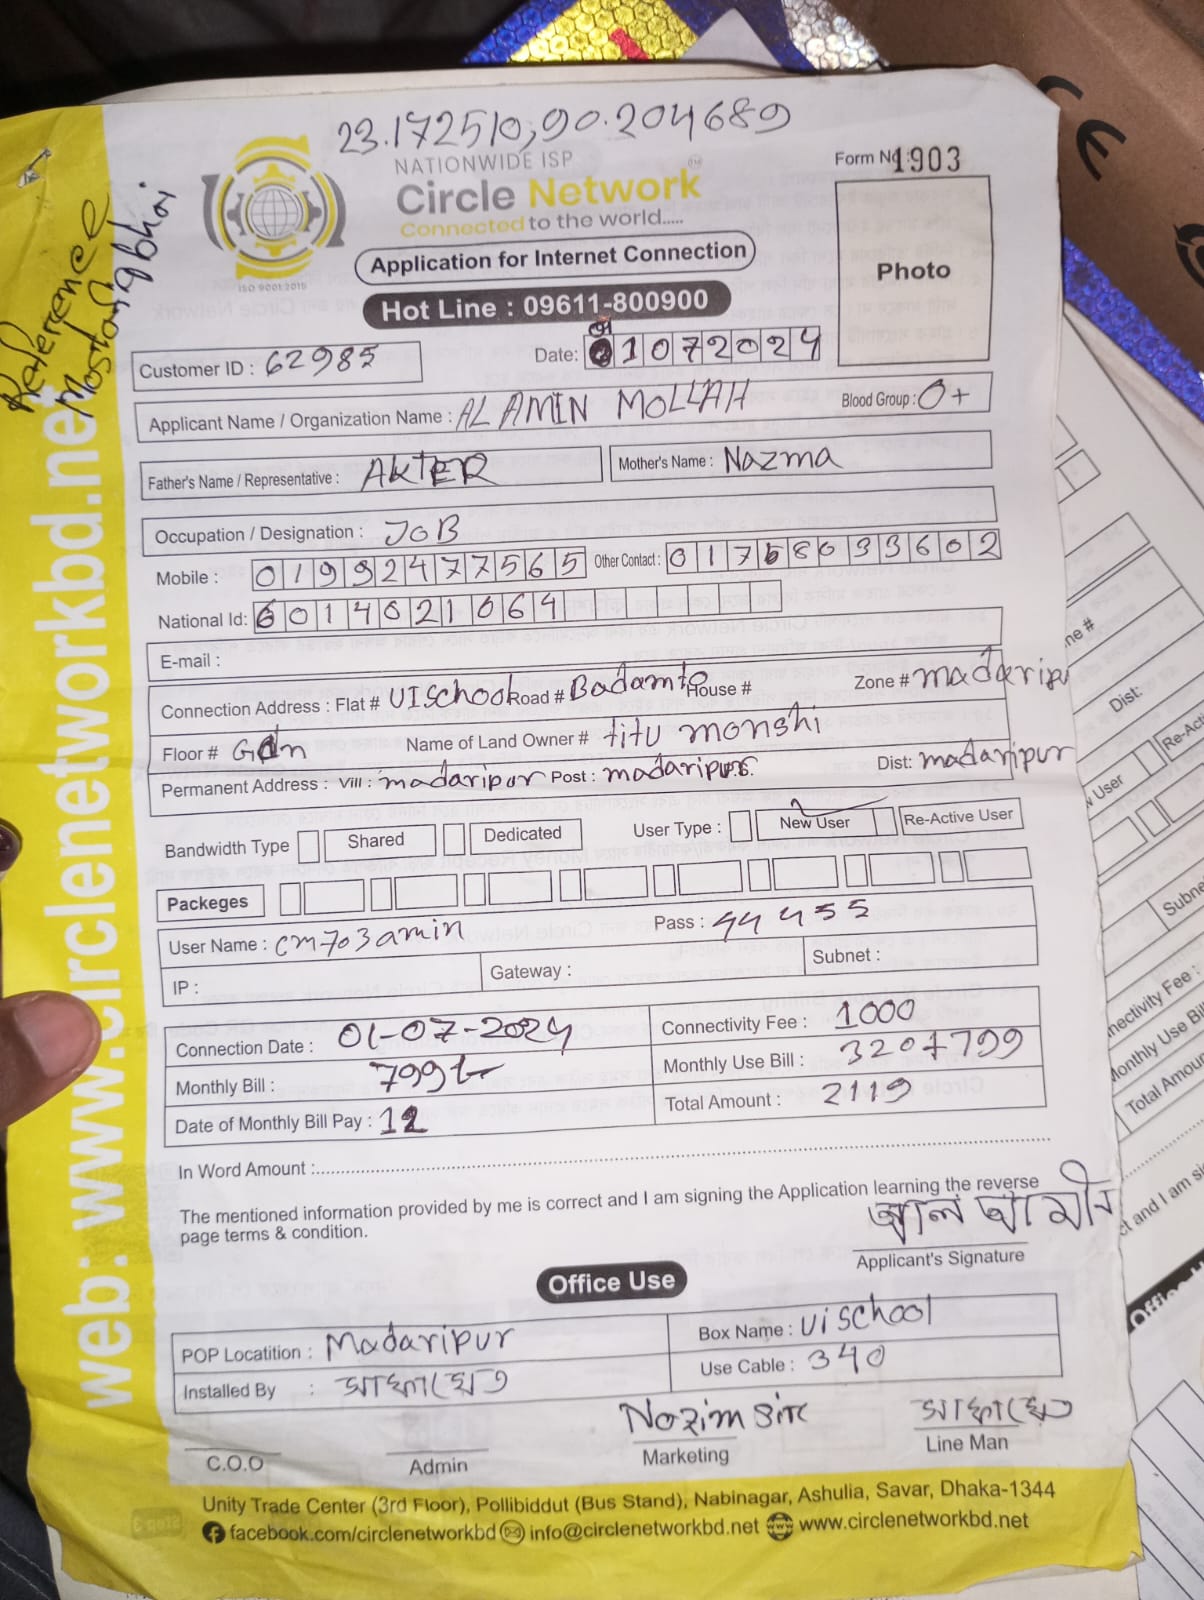 23.172510,90.204689
NATIONWIDE ISP
Circle Network
Connected to the world.....
ISO 9001:2015
Form No 1903
Photo
Reference
Application for Internet Connection
Hot Line : 09611-800900
Customer ID : 62985
Date: 01072024
Applicant Name / Organization Name : AL AMIN MOLLAH Blood Group : O+
Father's Name / Representative : AKTER Mother's Name : Nazma
Occupation / Designation : JOB
Mobile : 01992477565 Other Contact : 01758033602
National Id: 6014021064
E-mail :
Connection Address : Flat # UISchool Road # Badamto House # Zone # madarip
Floor # Gdn Name of Land Owner # titu monshi
Permanent Address : Vill : madaripur Post : madaripur Dist: madaripur
Bandwidth Type Shared Dedicated User Type : New User Re-Active User
Packeges
User Name : cm703amin Pass : 44455
IP : Gateway : Subnet :
Connection Date : 01-07-2024 Connectivity Fee : 1000
Monthly Bill : 799 Monthly Use Bill : 320+799
Date of Monthly Bill Pay : 12 Total Amount : 2119
In Word Amount :
The mentioned information provided by me is correct and I am signing the Application learning the reverse
page terms & condition.
আল আমীন
Applicant's Signature
Office Use
POP Locatition : Madaripur Box Name : UISchool
Installed By : Use Cable : 340
Nozim Sir
C.O.O Admin Marketing Line Man
Unity Trade Center (3rd Floor), Pollibiddut (Bus Stand), Nabinagar, Ashulia, Savar, Dhaka-1344
facebook.com/circlenetworkbd info@circlenetworkbd.net www.circlenetworkbd.net
web: www.circlenetworkbd.net
ne #
Dist:
User
Re-Acti
Subne
nnectivity Fee :
Monthly Use Bil
Total Amour
ct and I am si